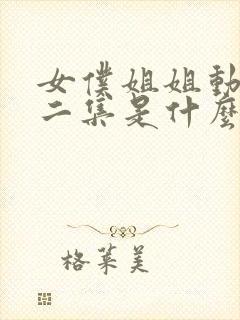 女僕姐姐動
二集是什麼
格萊美